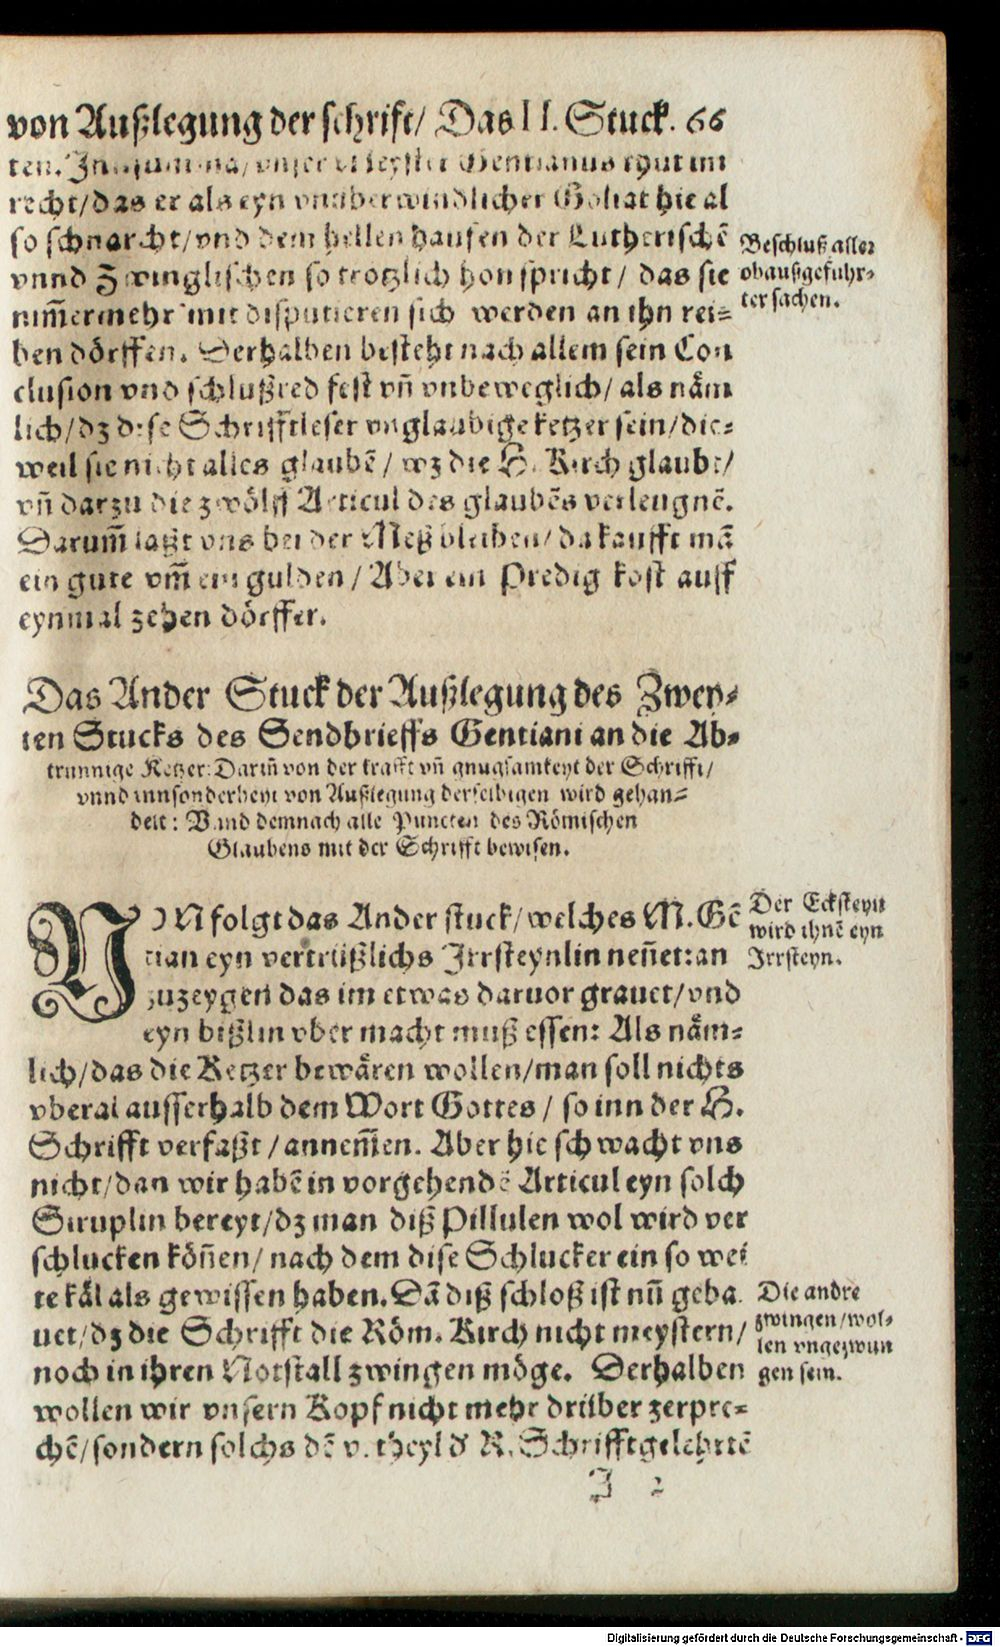 von Außlegung der schrifft/ Das II. Stuck. 66
ten. Inn summa/ vnser Meyster Gentianus thut im
recht/ das er als eyn vnüberwindlicher Goliat hie al
so schnarcht/ vnd dem hellen hausen der Lutherischē
vnnd Zwinglischen so trotzlich hon spricht/ das sie
nim̄ermehr mit disputieren sich werden an ihn rei=
ben dörffen. Derhalben besteht nach allem sein Con
clusion vnd schlußred fest vn̄ vnbeweglich/ als näm
lich/ dz dise Schrifftleser vnglaubige ketzer sein/ die=
weil sie nicht alles glaubē/ wz die H. Kirch glaubt/
vn̄ darzu die zwölff Articul des glaubēs verleugnē.
Darum̄ laßt vns bei der Meß bleiben/ da kaufft mā
ein gute vm̄ ein gulden/ Aber ein Predig kost auff
eynmal zehen dörffer.
Beschluß aller
obaußgefuhr=
ter sachen.
Das Ander Stuck der Außlegung des Zwey=
ten Stucks des Sendbrieffs Gentiani an die Ab=
trunnige Ketzer: Darin̄ von der krafft vn̄ gnugsamkeyt der Schrifft/
vnnd innsonderheyt von Außlegung derselbigen wird gehan=
delt: Vnnd demnach alle Puncten des Römischen
Glaubens mit der Schrifft bewisen.
NVN folgt das Ander stuck/ welches M. Gē
tian eyn vertrüßlichs Irrsteynlin nen̄et: an
zuzeygen das im etwas daruor grauet/ vnd
eyn bißlin vber macht muß essen: Als näm=
lich/ das die Ketzer bewären wollen/ man soll nichts
vberal ausserhalb dem Wort Gottes/ so inn der H.
Schrifft verfaßt/ annem̄en. Aber hie schwacht vns
nicht/ dan wir habē in vorgehendē Articul eyn solch
Siruplin bereyt/ dz man diß Pillulen wol wird ver
schlucken kön̄en/ nach dem dise Schlucker ein so wei
te käl als gewissen haben. Dā diß schloß ist nun̄ geba
uet/ dz die Schrifft die Röm. Kirch nicht meystern/
noch in ihren Notstall zwingen möge. Derhalben
wollen wir vnsern Kopf nicht mehr drüber zerpre=
chē/ sondern solchs dē v. theyl d' R. Schrifftgelehrtē
Der Ecksteyn
wird ihnē eyn
Irrsteyn.
Die andre
zwingen/ wol=
len vngezwun
gen sein.
I 2
Digitalisierung gefördert durch die Deutsche Forschungsgemeinschaft - DFG